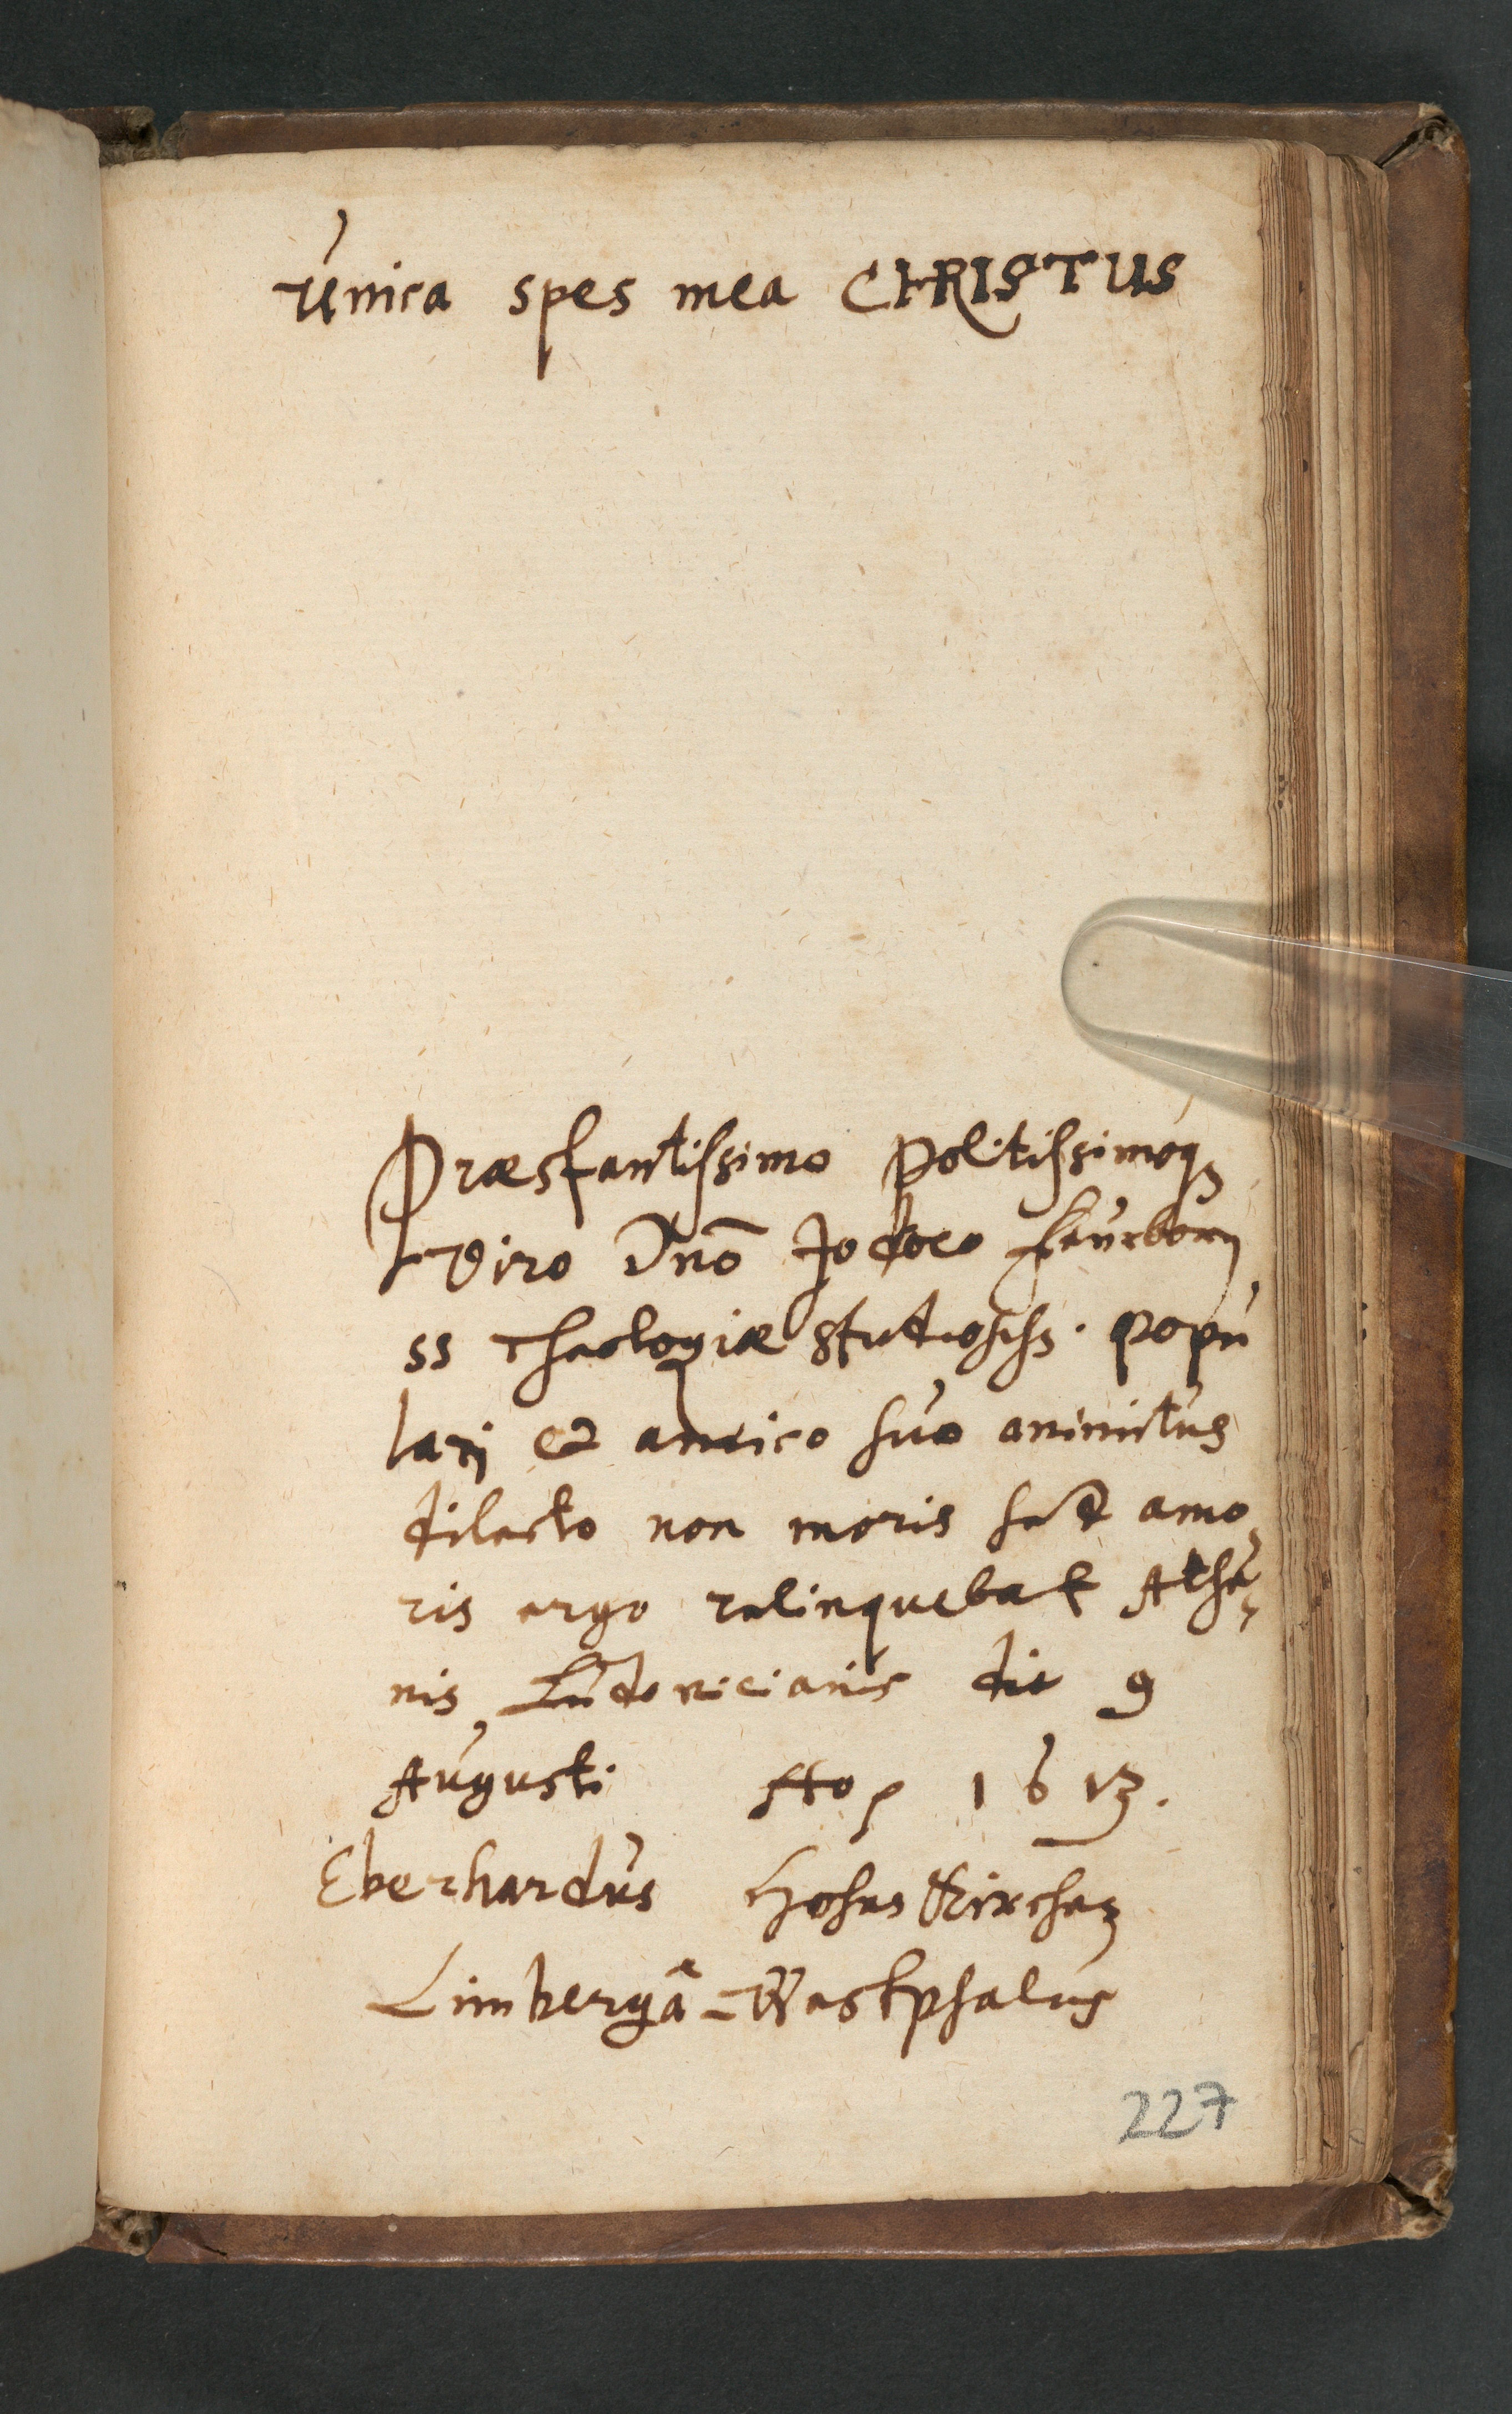 Unica spes mea CHRISTUS
Præstantissimo Politissimoq́₃
Viro Dnō Jodoco Feurborn
SS Theologiæ Studiosiss. Popu
larj et amico suo animitus
dilecto non moris sed amo
ris ergo relinquebat Athe
nis Ludovicianis die 9
Augusti Ao 1613.
Eberhardus HohenKirchen
Limbergâ-Westphalus
227